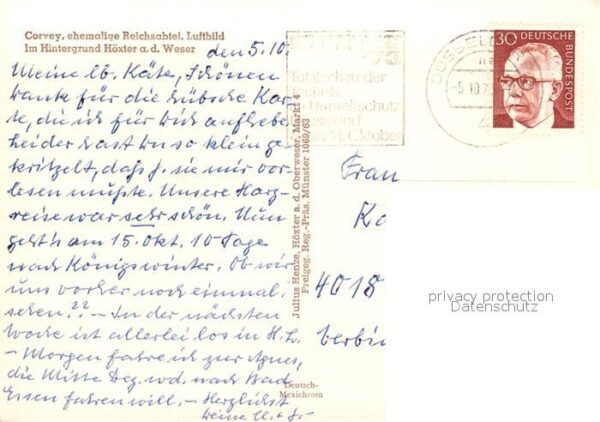 Corvey, ehemalige Reichsabtei, Luftbild
Im Hintergrund Höxter a. d. Weser
den 5.10.
Meine lb. Käte, schönen
Dank für die hübsche Kar-
te, die ich für Dich aufhebe.
Leider hast Du so klein ge-
kritzelt, daß J. sie mir vor-
lesen mußte. Unsere Harz-
reise war sehr schön. Nun
geht's am 15. Okt. 10 Tage
nach Königswinter. Ob wir
uns vorher noch einmal
sehen?? – In der nächsten
Woche ist allerlei los in H.h.
– Morgen fahre ich zur Agnes,
die Mitte Dez. wd. nach Bad
Essen fahren will. – Herzlichst
Deine
Julius Henze, Höxter a. d. Oberweser, Markt
Freigeg. Reg.-Präs. Münster 1069/63
Deutsch-
Mexichrom
Totalschau der
Technik
Umweltschutz
14. Oktober
DÜSSELD
-5.10.7
30 DEUTSCHE
BUNDESPOST
Frau
4018
privacy protection
Datenschutz